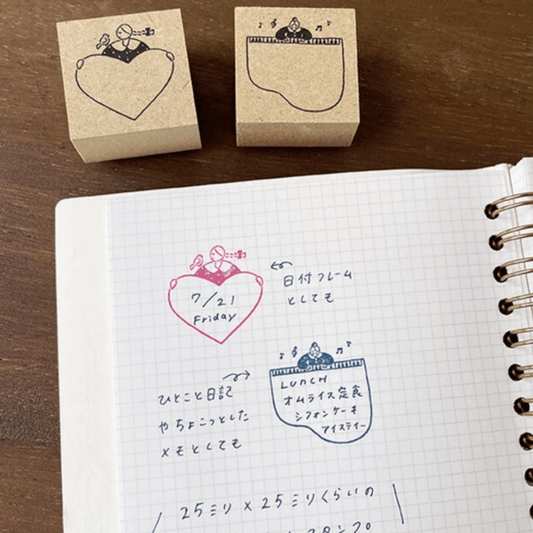 7/21
Friday
日付フレーム
としても
ひとこと日記
やちょこっとした
メモとしても
LUNCH
オムライス定食
シフォンケーキ
アイスティー
25ミリ×25ミリくらいの
スタンプ